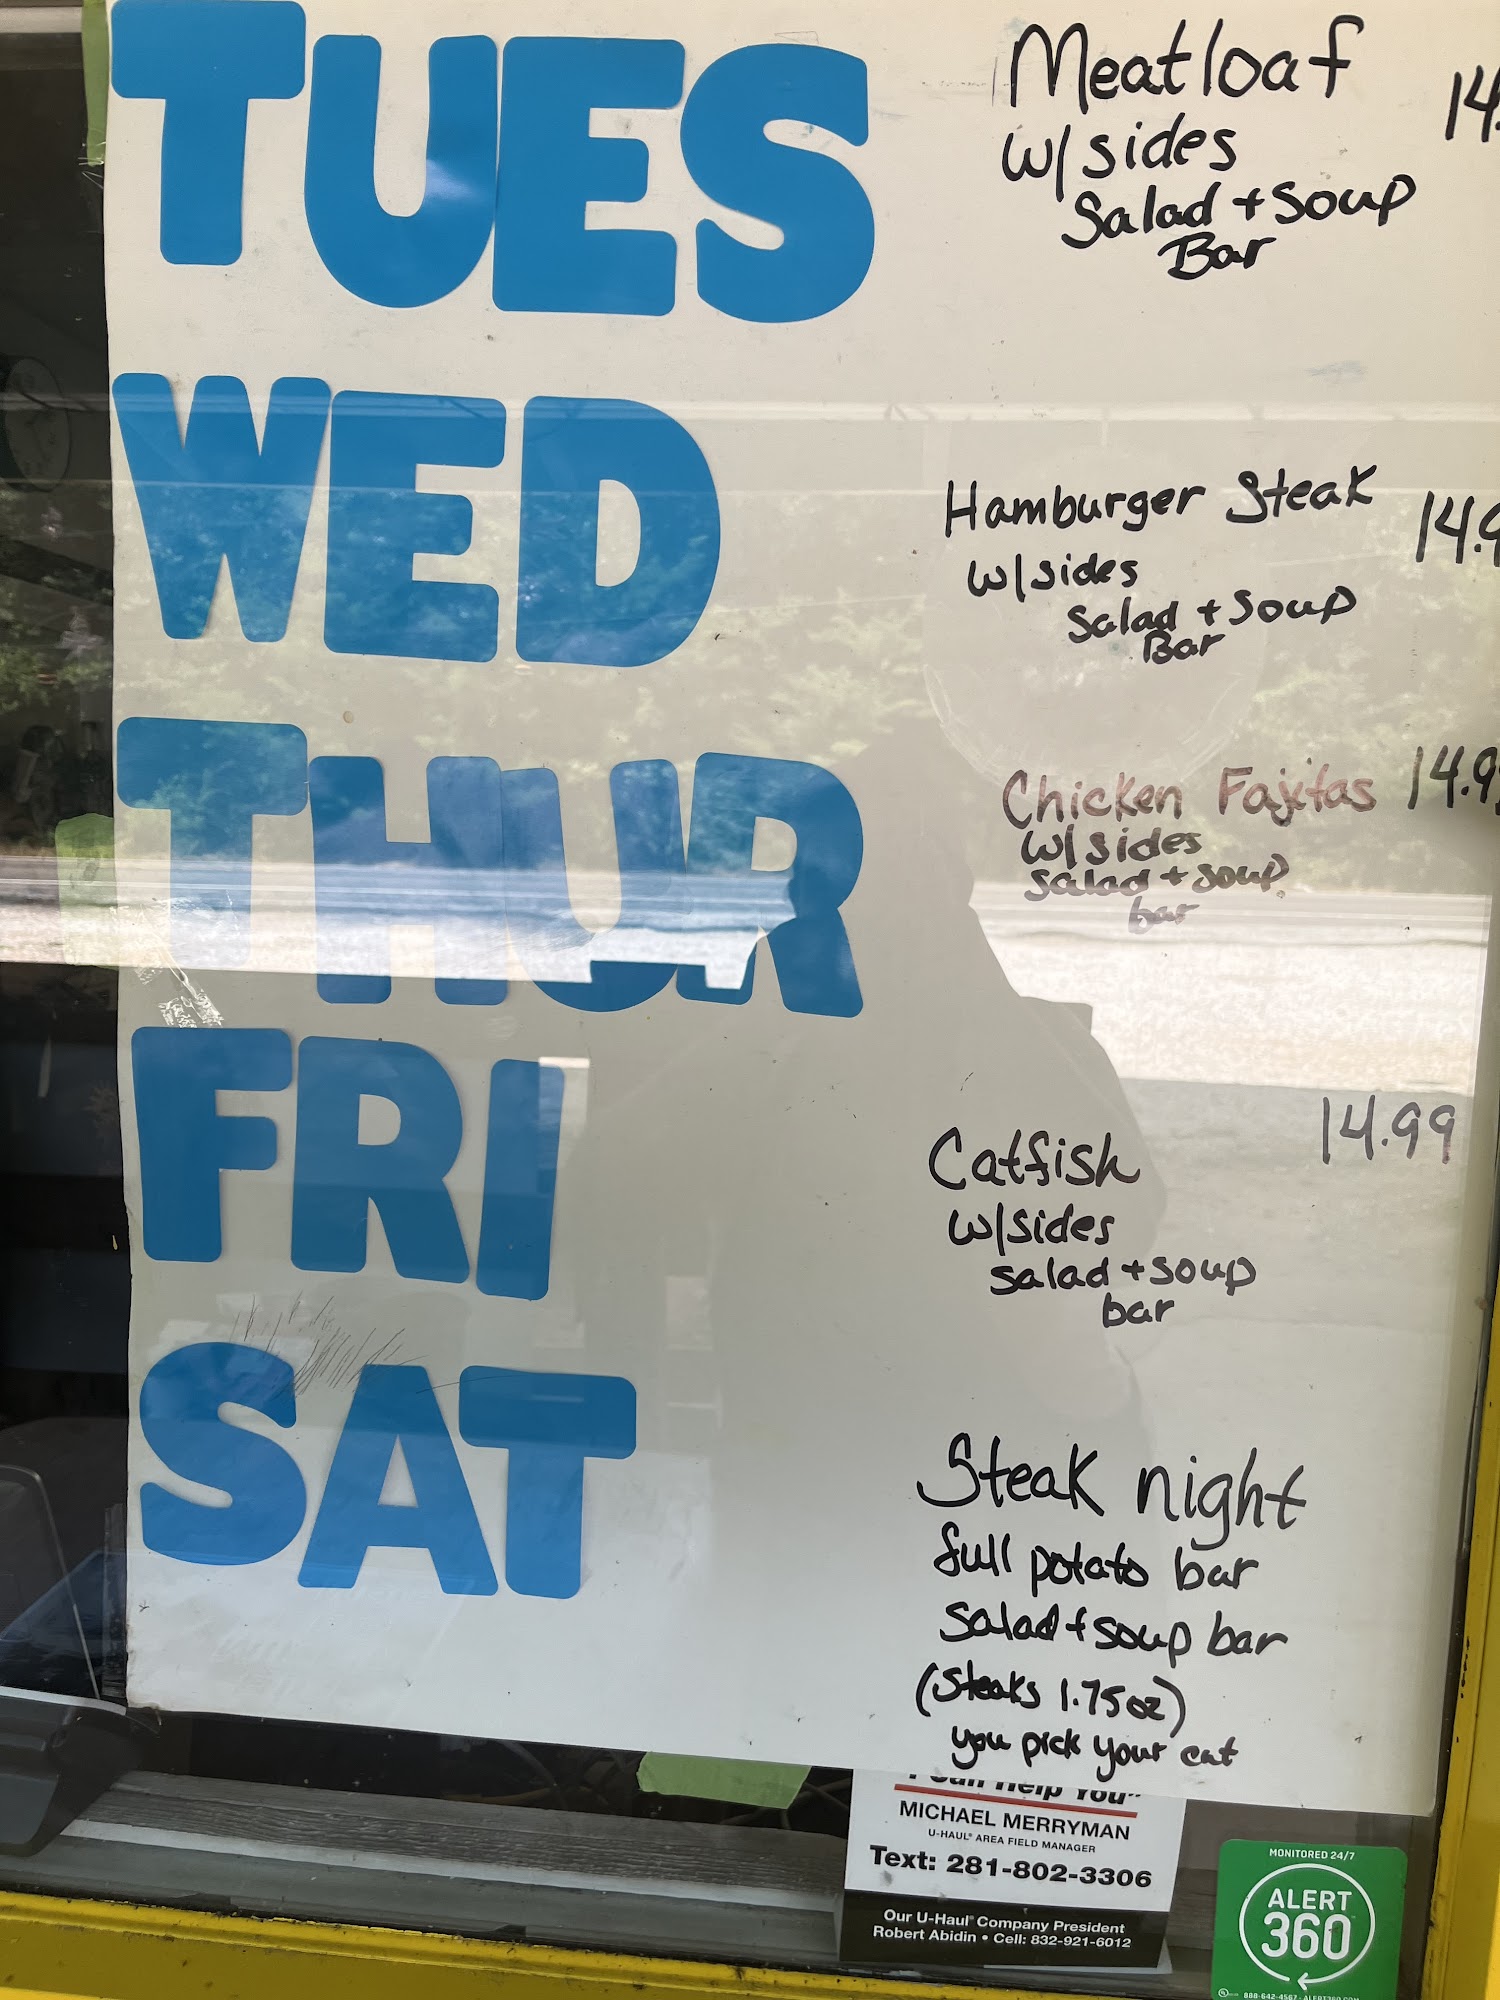 TUES
Meatloaf 14.
w/sides
Salad + Soup
Bar
WED
Hamburger Steak 14.9
w/sides
Salad + Soup
Bar
THUR
Chicken Fajitas 14.9
w/sides
salad + soup
bar
FRI
14.99
Catfish
w/sides
salad + soup
bar
SAT
Steak night
full potato bar
salad + soup bar
(Steaks 1.75oz)
you pick your cut
I Can Help You"
MICHAEL MERRYMAN
U-HAUL® AREA FIELD MANAGER
Text: 281-802-3306
Our U-Haul® Company President
Robert Abidin • Cell: 832-921-6012
MONITORED 24/7
ALERT
360
888-642-4567 - ALERT360.COM